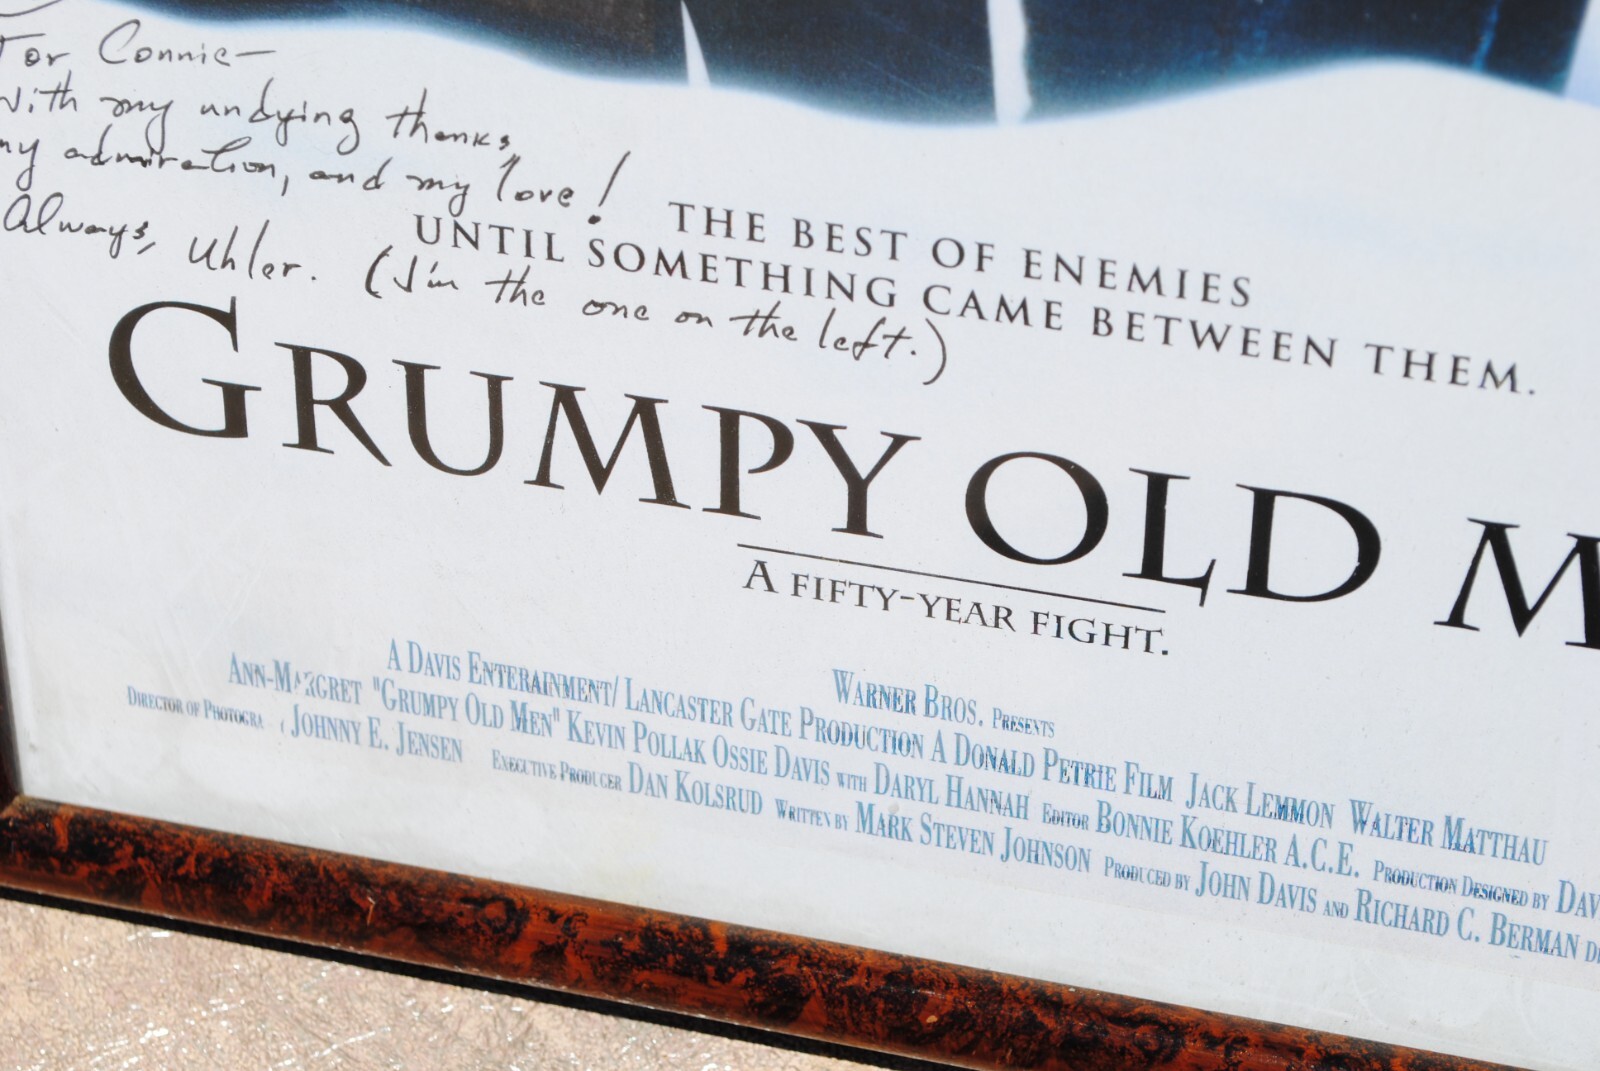 For Connie—
With my undying thanks,
my admiration, and my love!
Always, Uhler. (I'm the one on the left.)
THE BEST OF ENEMIES
UNTIL SOMETHING CAME BETWEEN THEM.
GRUMPY OLD M
A FIFTY-YEAR FIGHT.
WARNER BROS. PRESENTS
A DAVIS ENTERAINMENT/ LANCASTER GATE PRODUCTION A DONALD PETRIE FILM JACK LEMMON WALTER MATTHAU
ANN-MARGRET "GRUMPY OLD MEN" KEVIN POLLAK OSSIE DAVIS WITH DARYL HANNAH EDITOR BONNIE KOEHLER A.C.E. PRODUCTION DESIGNED BY DAV
DIRECTOR OF PHOTOGRA JOHNNY E. JENSEN EXECUTIVE PRODUCER DAN KOLSRUD WRITTEN BY MARK STEVEN JOHNSON PRODUCED BY JOHN DAVIS AND RICHARD C. BERMAN DI